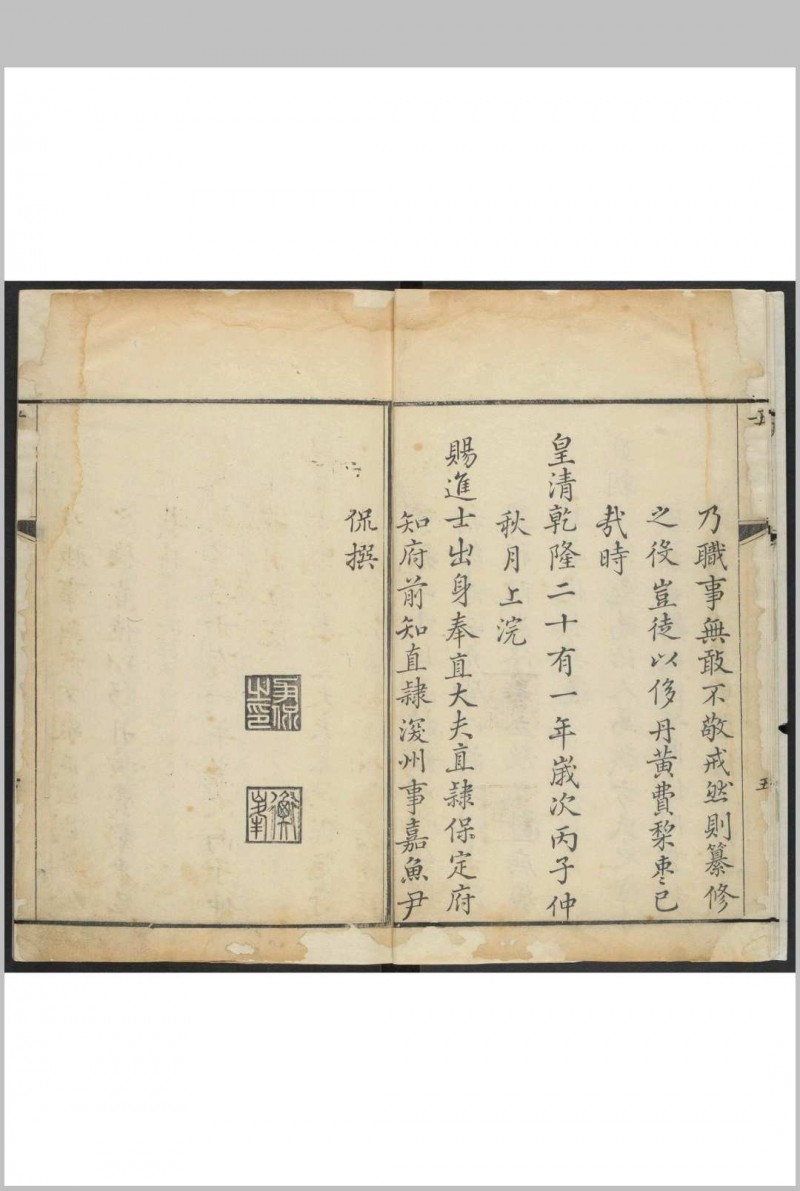 乃職事無敢不敬戒然則纂修
之役豈徒以侈丹黃費棃枣已
㢤時
皇清乾隆二十有一年嵗次丙子仲
秋月上浣
賜進士出身奉直大夫直隷保定府
知府前知直隷滚州事嘉魚尹
侃撰
尹侃之印
衡峯
五